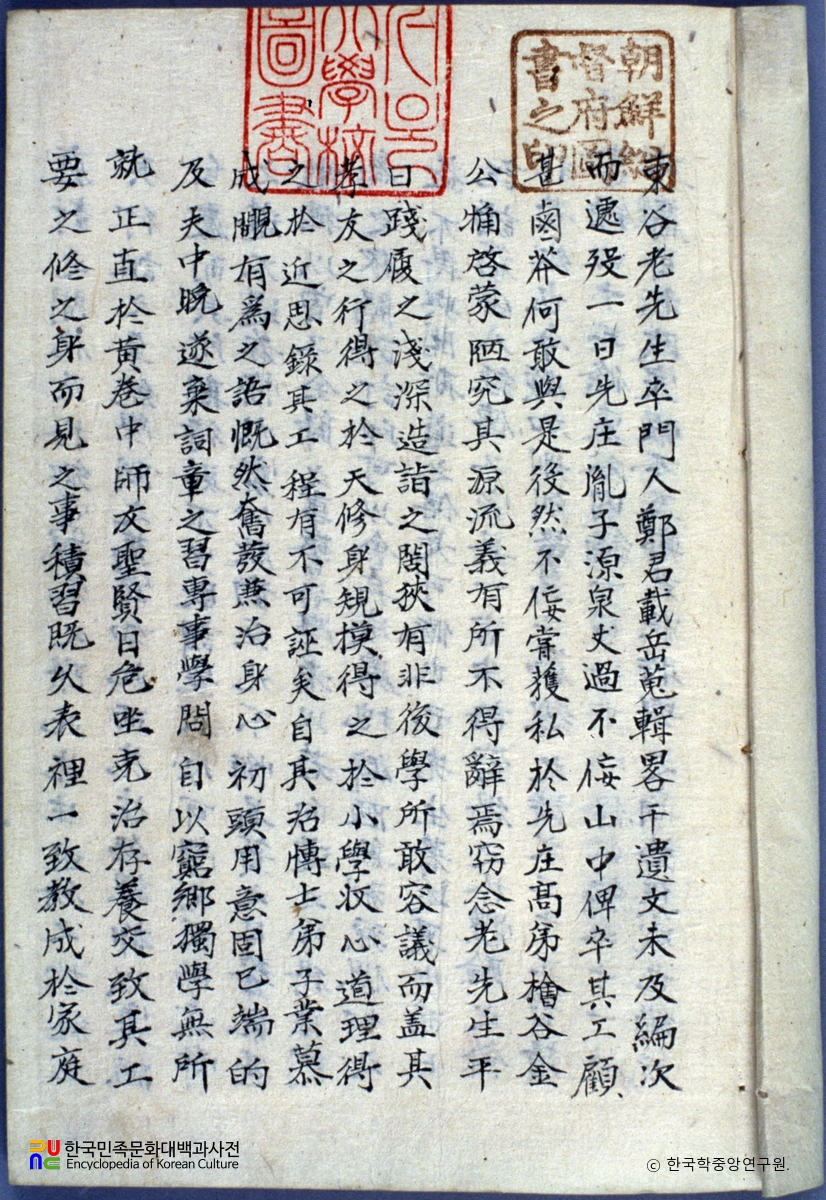 朝鮮總
督府圖
書之印
學校
圖書
東谷老先生卒門人鄭君載岳蒐輯畧干遺文未及編次
而遽歿一日先庄胤子源泉丈過不侫山中俾卒其工顧
甚鹵莽何敢與是役然不侫甞獲私於先庄高弟檜谷金
公牖啓蒙陋究其源流義有所不得辭焉窃念老先生平
日踐履之淺深造詣之闊狹有非後學所敢容議而盖其
孝友之行得之於天修身䂓摸得之於小學收心道理得
之於近思錄其工程有不可誣矣自其治愽士弟子業慕
成覸有爲之語慨然奮發燕治身心初頭用意固已端的
及夫中晩遂棄詞章之習專事學問自以窮鄉獨學無所
就正直於黃卷中師友聖賢日危坐克治存養交致其工
要之修之身而見之事積習旣久表裡一致敎成於家庭
한국민족문화대백과사전
Encyclopedia of Korean Culture
ⓒ 한국학중앙연구원.